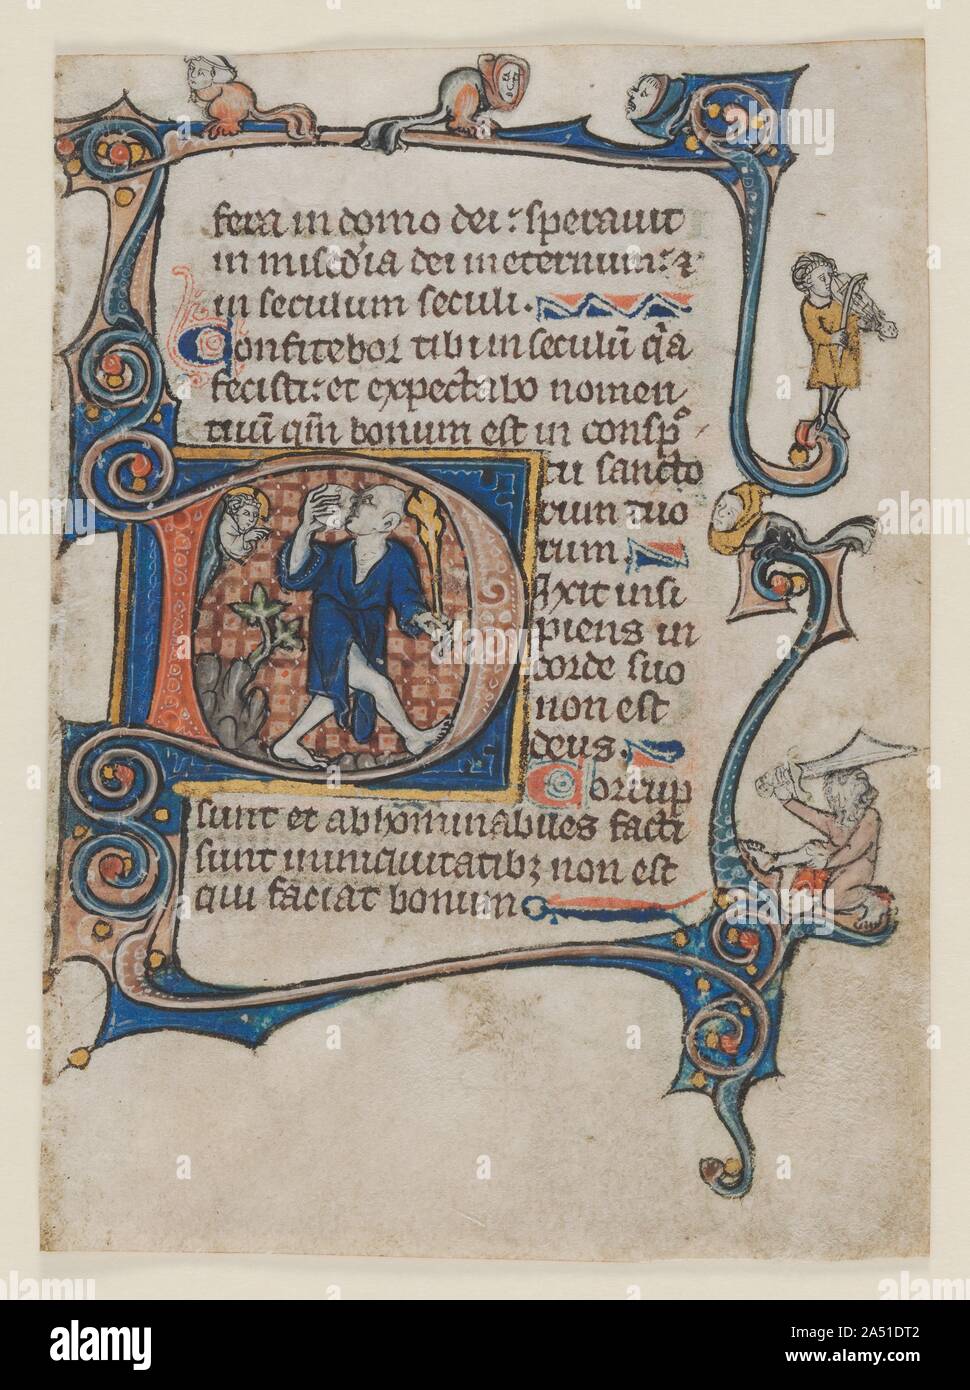 fera in domo dei: speravit
in misedia dei in eternum: &
in seculum seculi.
Confitebor tibi in seculū qa
fecisti: et expectabo nomen
tuū qm bonum est in consp
tu sancto
rum tuo
rum
Dixit insi
piens in
corde suo
non est
deus.
Corrup
sunt et abhominabiles facti
sunt in iniquitatibz non est
qui faciat bonum
alamy
Image ID: 2A51DT2
www.alamy.com